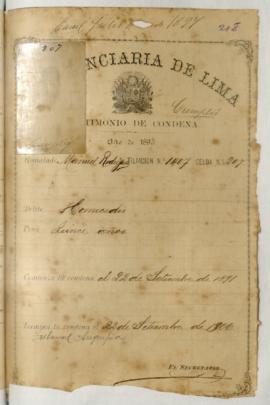 de 1897
208
207
NCIARIA DE LIMA
Cumplió
TIMONIO DE CONDENA
Año de 189
Rematado Manuel Rodjz FILIACION N.º 1407 CELDA N.º 207
Delito Homicidio
Pena Quince años
Comienza la condena el 22 de Setiembre de 1891
Termina la condena el 22 de Setiembre de 1906
Tribunal Arequipa
EL SECRETARIO